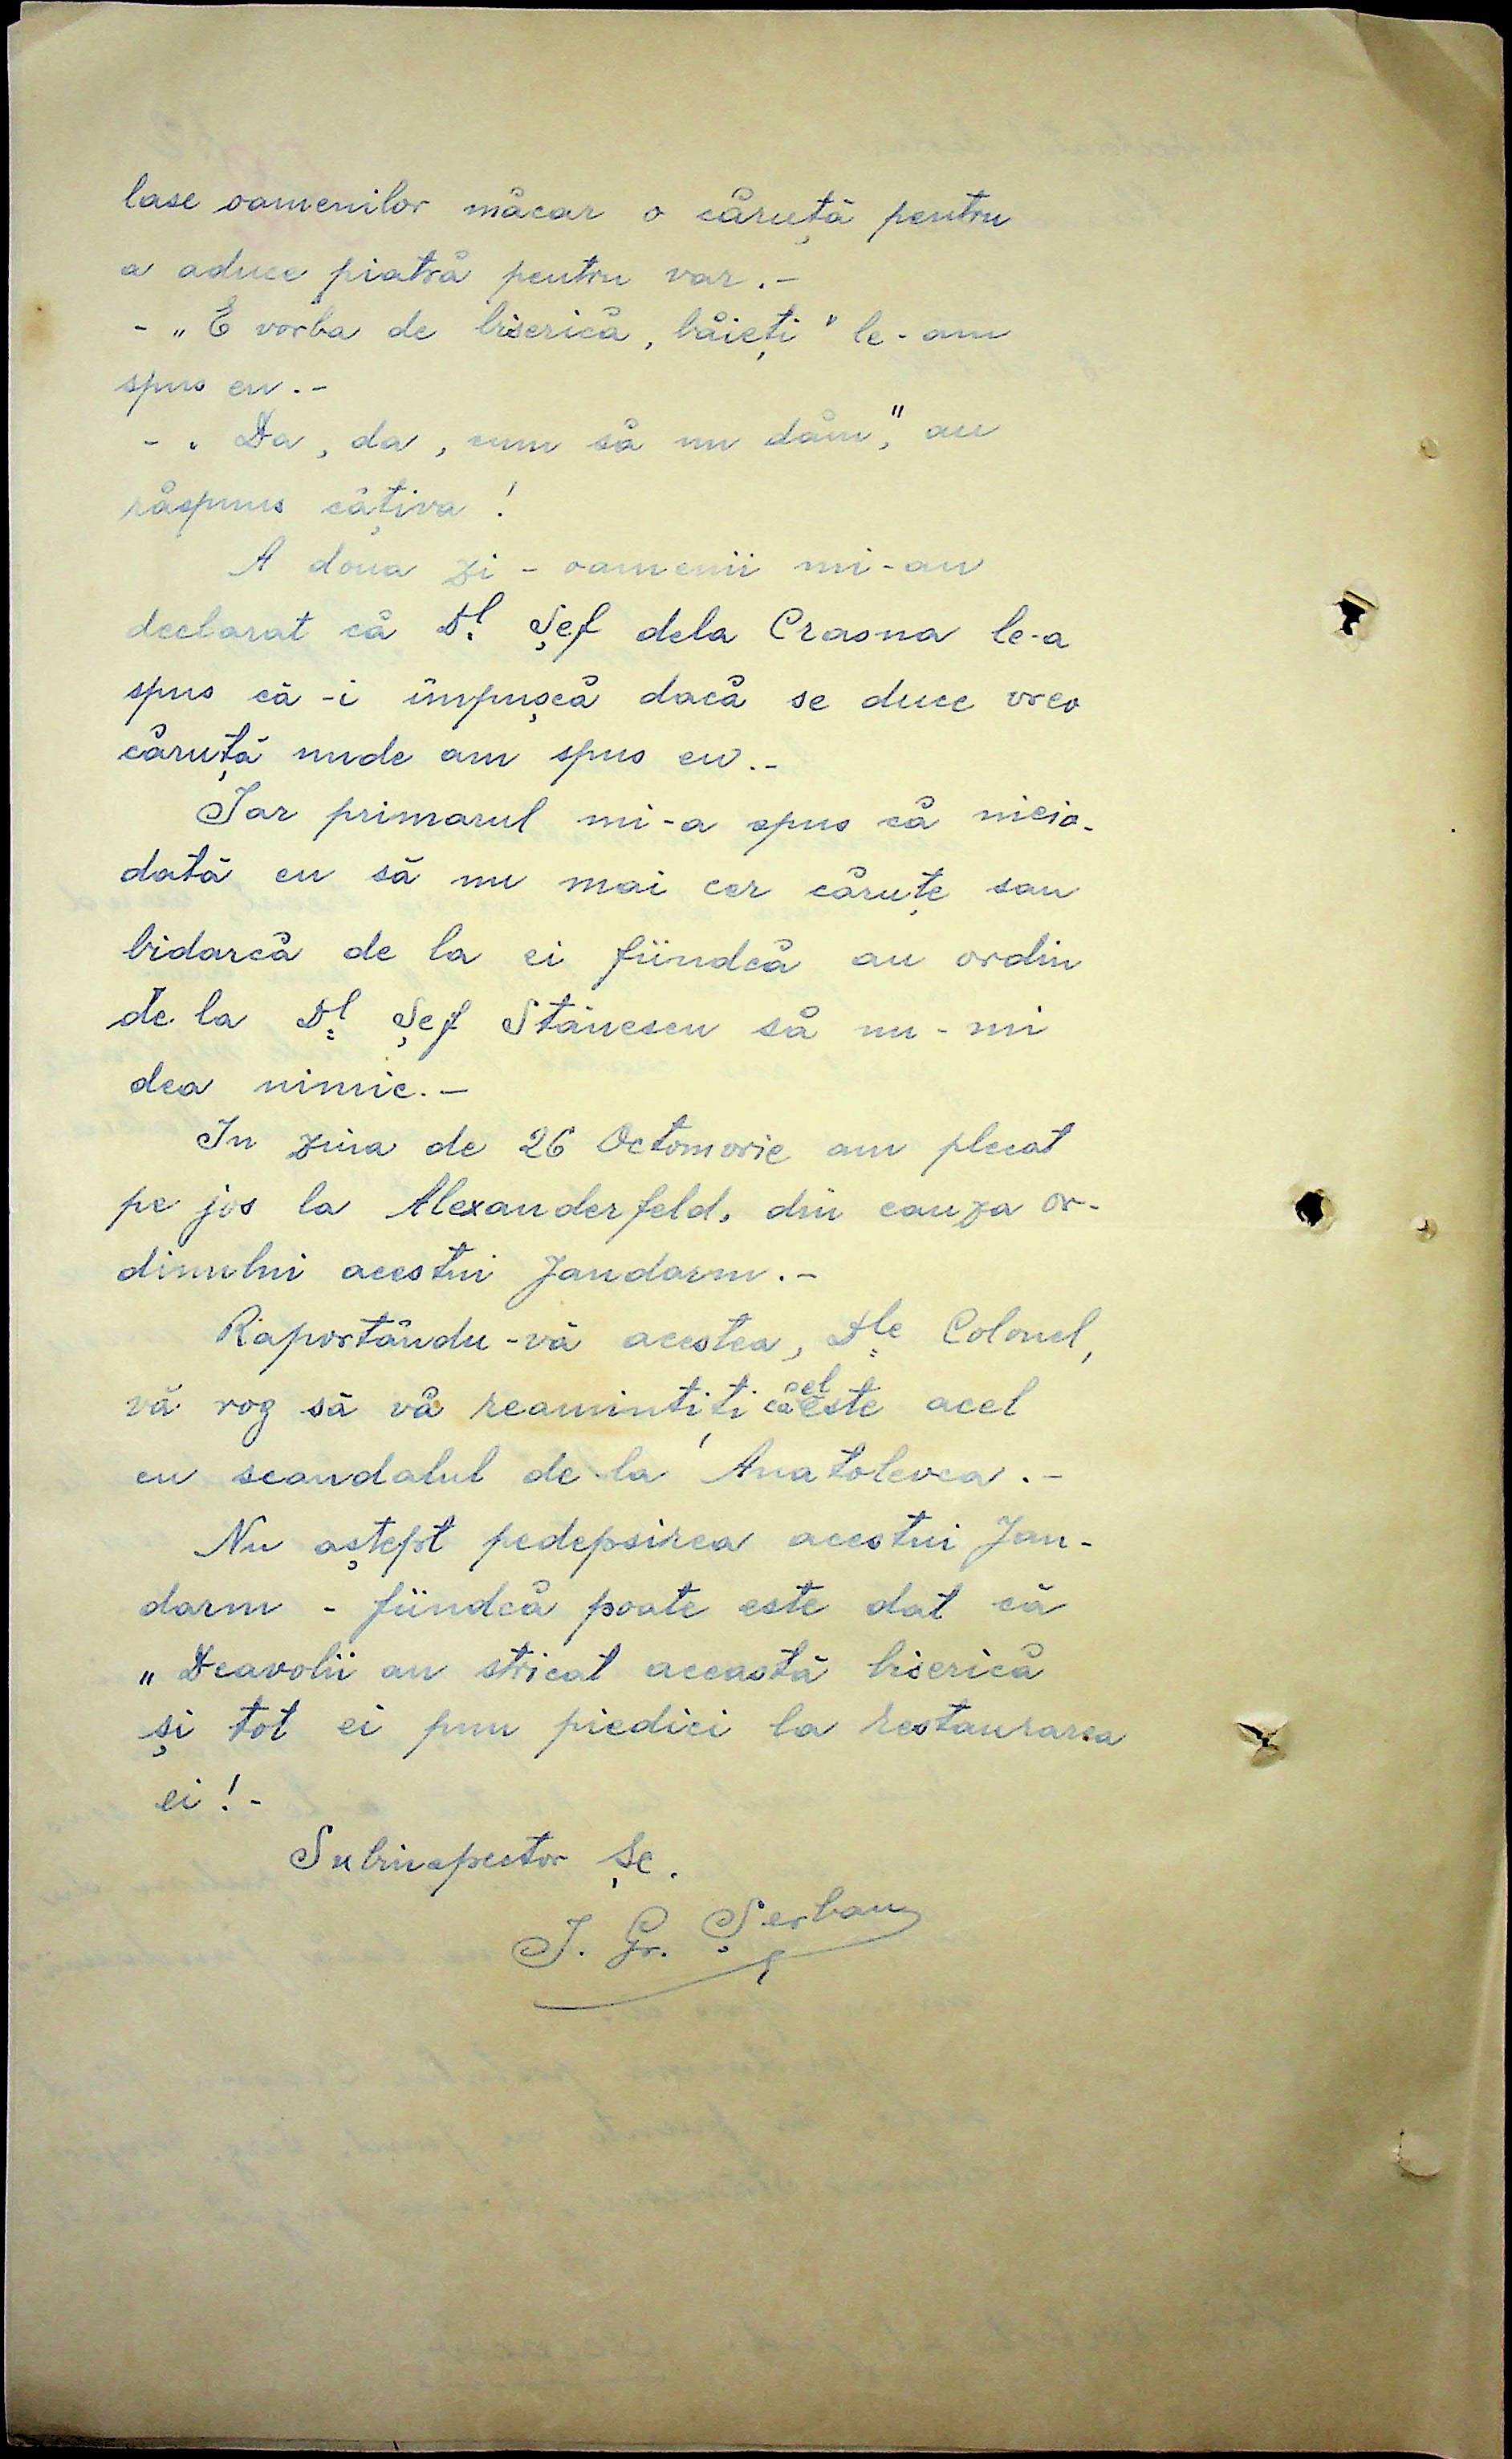 lase oamenilor măcar o căruță pentru
a aduce piatră pentru var.-
- „E vorba de biserică, băieți" le-am
spus eu.-
- „Da, da, cum să nu dăm", au
răspuns câțiva!
A doua zi - oamenii mi-au
declarat că Dl. Șef dela Crasna le-a
spus că-i împușcă dacă se duce vreo
căruță unde am spus eu.-
Iar primarul mi-a spus că nicio-
dată eu să nu mai cer căruțe sau
bidarcă de la ei fiindcă au ordin
de la Dl. Șef Stănescu să nu-mi
dea nimic.-
In ziua de 26 Octomvrie am plecat
pe jos la Alexanderfeld, din cauza or-
dinului acestui Jandarm.-
Raportându-vă acestea, Dle Colonel,
vă rog să vă reamintiți că el este acel
cu scandalul de la Anatolevca.-
Nu aștept pedepsirea acestui Jan-
darm - fiindcă poate este dat că
„Deavolii au stricat această biserică
și tot ei pun piedici la restaurarea
ei!-
Subinspector Șc.
I. Gr. Șerban